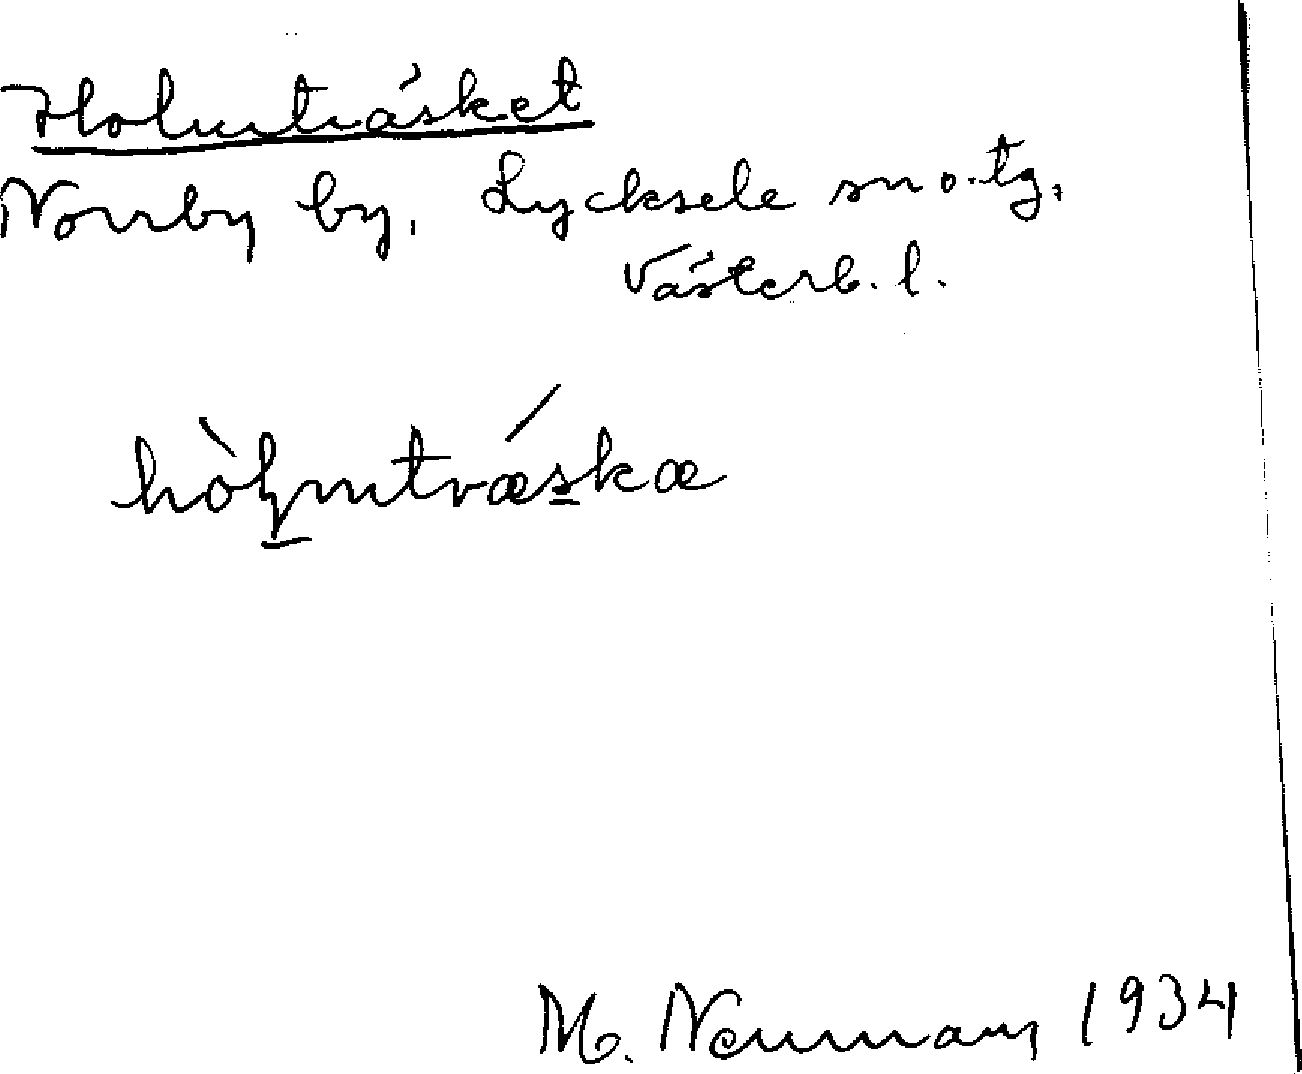 Holmträsket
Norrby by, Lycksele sn o. tg,
Västerb. l.
M. Neuman 1934